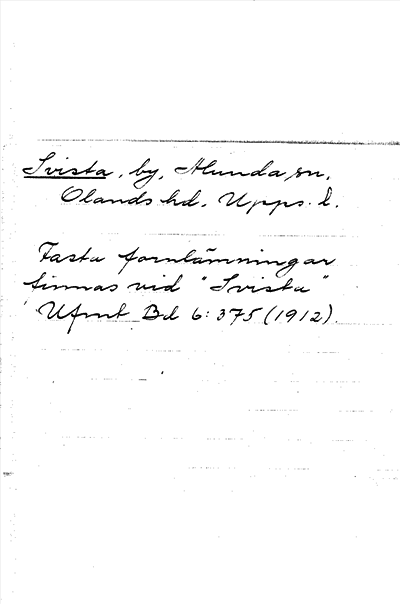 Svista, by, Alunda sn,
Olands hd. Upps. l.
Fasta fornlämningar
finnas vid "Svista"
Ufmt Bd 6:375 (1912).